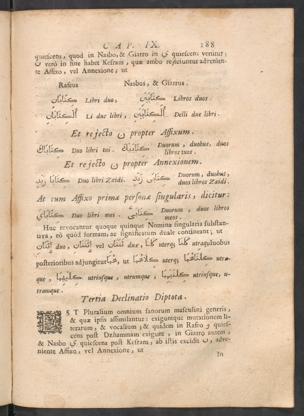 CAP. IX. 188
quiescens, quod in Nasbo, & Giarro in ي quiescens vertitur;
ن verò in fine habet Kesram, quæ ambo rejiciuntur advenien-
te Affixo, vel Annexione, ut
Rafaus Nasbus, & Giarrus.
كتابان Libri duo, كتابين Libros duos.
الكتابان Li due libri, الكتابين Delli due libri.
Et rejecto ن propter Affixum.
كتاباك Duo libri tui. كتابيك Duorum, duobus, duos
libros tuos.
Et rejecto ن propter Annexionem.
كتابا زيد Duo libri Zaidi. كتابي زيد Duorum, duobus,
duos libros Zaidi.
At cum Affixo primæ personæ singularis, dicitur:
كتاباي Duo libri mei. كتابي Duorum, duos libros
meos.
Huc revocantur quoque quinque Nomina singularia substan-
tiva, eò quod formam, ac significatum duale contineant, ut
اثنان duo, اثنتان vel ثنتان duæ, كلا uterque, كلتا utraque; duobus
posterioribus adjungitur, ut
utriusque, utrumque, utriusque, u-
tramque.
Tertia Declinatio Diptota.
EST Pluralium omnium sanorum masculini generis,
& quæ ipsis assimilantur: exiguntque mutationem li-
terarum, & vocalium; & quidem in Rafao و quies-
cens post Dzhammam exigunt, in Giarro autem,
& Nasbo ي quiescens post Kesram, ab istis excidit ن, adve-
niente Affixo, vel Annexione, ut
In